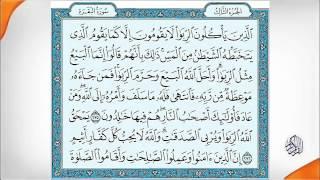 الجزء الثالث سورة البقرة
الذين يأكلون الربوا لا يقومون إلا كما يقوم الذى
يتخبطه الشيطن من المس ذلك بأنهم قالوا إنما البيع
مثل الربوا وأحل الله البيع وحرم الربوا فمن جاءه
موعظة من ربه فانتهى فله ما سلف وأمره إلى الله ومن
عاد فأولئك أصحب النار هم فيها خلدون ٢٧٥ يمحق
الله الربوا ويربى الصدقت والله لا يحب كل كفار أثيم
٢٧٦ إن الذين ءامنوا وعملوا الصلحت وأقاموا الصلوة